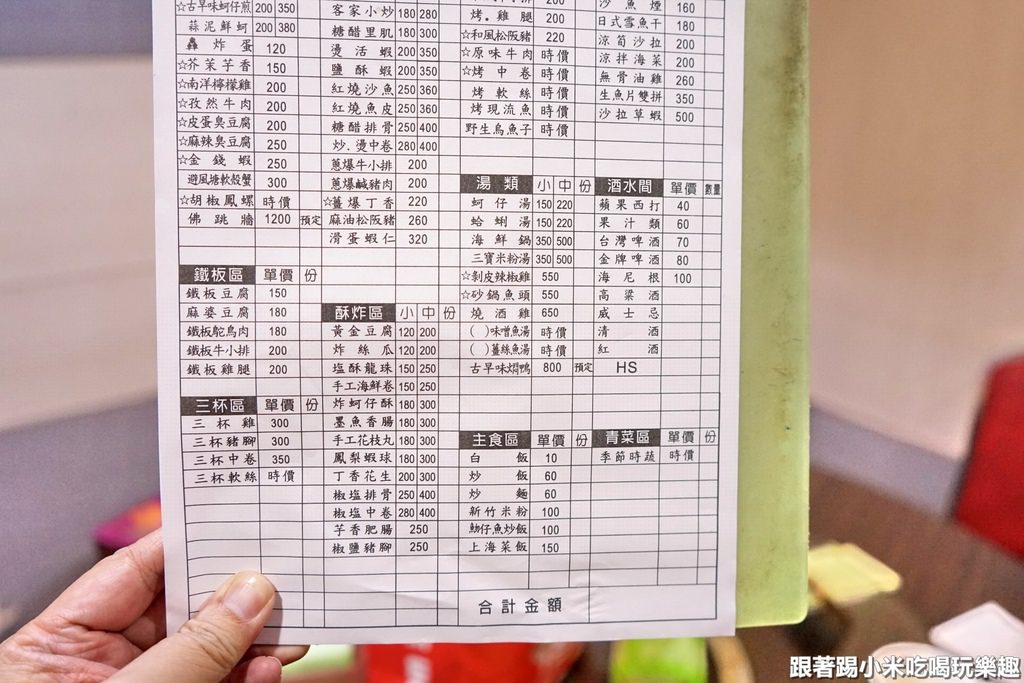 ☆古早味蚵仔煎 200 350
蒜泥鮮蚵 200 380
轟炸蛋 120
☆芥茉芋香 150
☆南洋檸檬雞 200
☆孜然牛肉 200
☆皮蛋臭豆腐 200
☆麻辣臭豆腐 250
☆金錢蝦 250
避風塘軟殼蟹 300
☆胡椒鳳螺 時價
佛跳牆 1200 預定
鐵板區 單價 份
鐵板豆腐 150
麻婆豆腐 180
鐵板鴕鳥肉 180
鐵板牛小排 200
鐵板雞腿 200
三杯區 單價 份
三杯雞 300
三杯豬腳 300
三杯中卷 350
三杯軟絲 時價
客家小炒 180 280
糖醋里肌 180 300
燙活蝦 200 350
鹽酥蝦 200 350
紅燒沙魚 250 360
紅燒魚皮 250 360
糖醋排骨 250 400
炒.燙中卷 280 400
蔥爆牛小排 200
蔥爆鹹豬肉 200
☆薑爆丁香 220
麻油松阪豬 260
滑蛋蝦仁 320
酥炸區 小 中 份
黃金豆腐 120 200
炸絲瓜 120 200
塩酥龍珠 150 250
手工海鮮卷 150 250
炸蚵仔酥 180 300
墨魚香腸 180 300
手工花枝丸 180 300
鳳梨蝦球 180 300
丁香花生 200 300
椒塩排骨 250 400
椒塩中卷 280 400
芋香肥腸 250
椒鹽豬腳 250
200
烤.雞腿 200
☆和風松阪豬 220
☆原味牛肉 時價
☆烤中卷 時價
烤軟絲 時價
烤現流魚 時價
野生烏魚子 時價
湯類 小 中 份
蚵仔湯 150 220
蛤蜊湯 150 220
海鮮鍋 350 500
三寶米粉湯 350 500
☆剝皮辣椒雞 550
☆砂鍋魚頭 550
燒酒雞 650
( )味噌魚湯 時價
( )薑絲魚湯 時價
古早味燜鴨 800 預定
主食區 單價 份
白飯 10
炒飯 60
炒麵 60
新竹米粉 100
魩仔魚炒飯 100
上海菜飯 150
合計金額
沙魚煙 160
日式雪魚干 180
涼筍沙拉 200
涼拌海菜 200
無骨油雞 260
生魚片雙拼 350
沙拉草蝦 500
酒水間 單價 數量
蘋果西打 40
果汁類 60
台灣啤酒 70
金牌啤酒 80
海尼根 100
高粱酒
威士忌
清酒
紅酒
HS
青菜區 單價 份
季節時蔬 時價
跟著踢小米吃喝玩樂趣